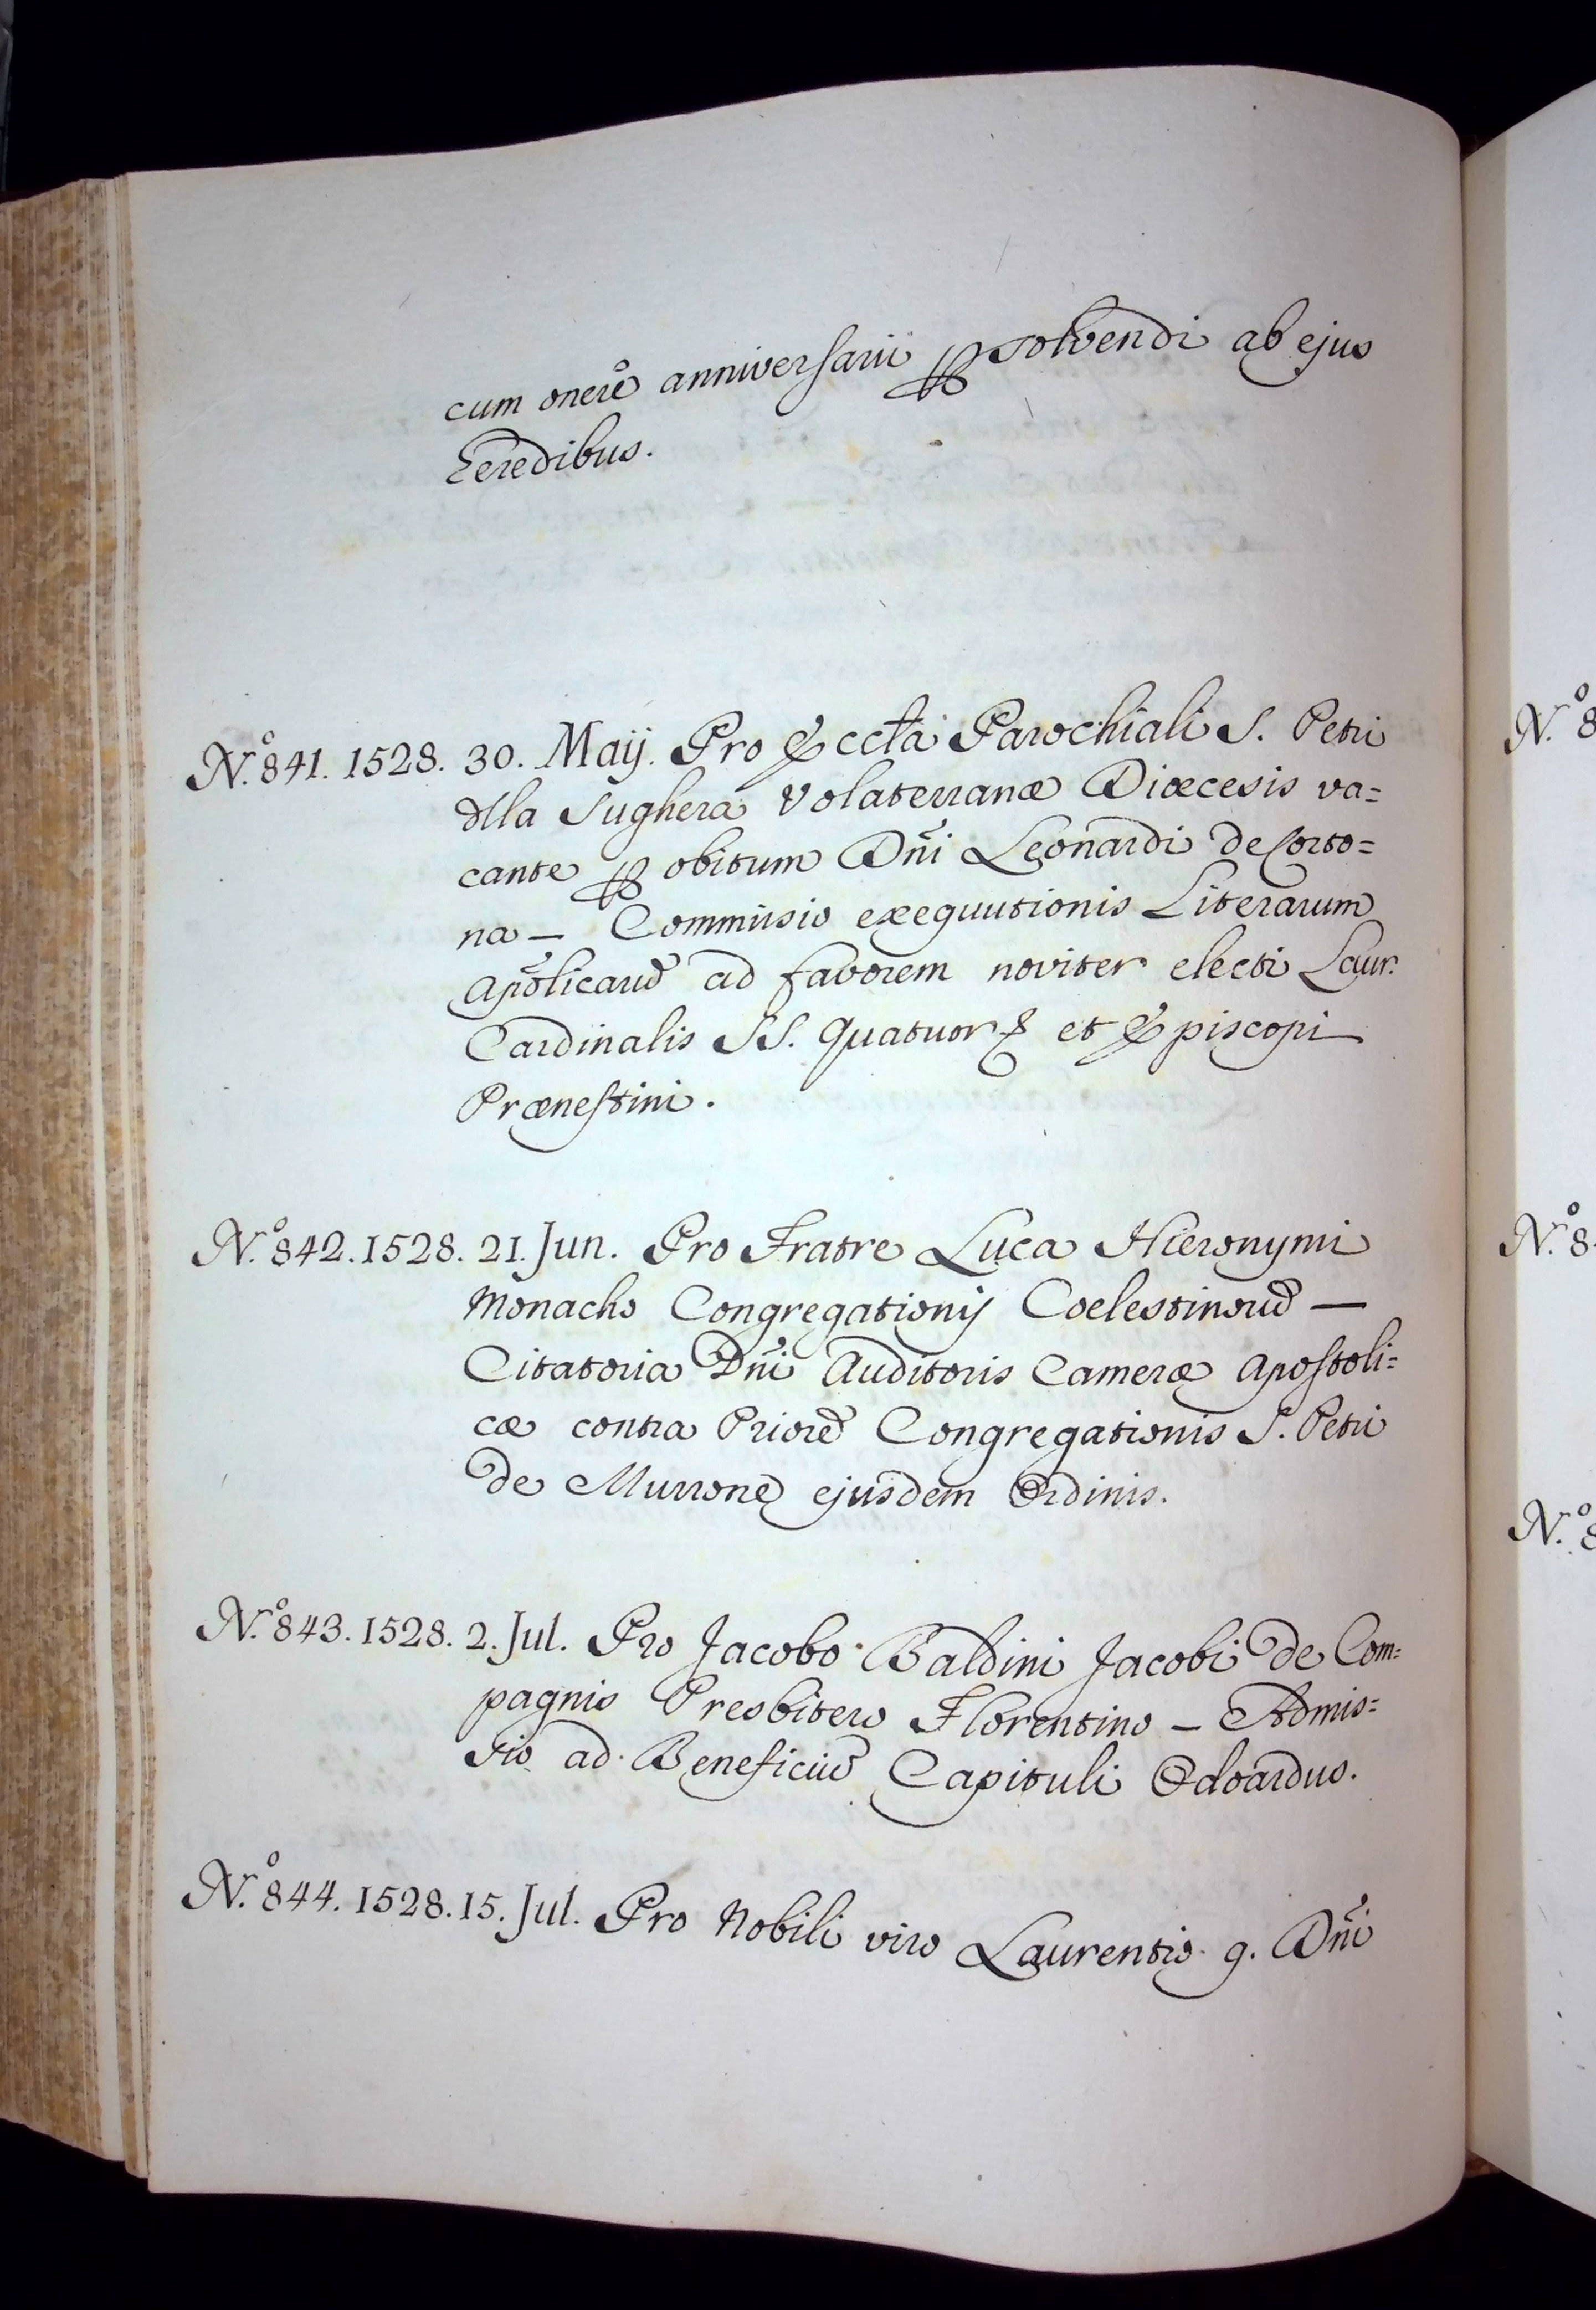 cum onere anniversarii ꝑsolvendi ab ejus
Eeredibus.
N.º 841. 1528. 30. Maij. Pro Eccła Parochiali S. Petri
dlla Sughera Volaterranæ Diœcesis va=
cante ꝑ obitum Dñi Leonardi de Corto=
na — Commissio exequutionis Literarum
Apõlicarũ ad favorem noviter electi Laur.
Cardinalis SS. Quatuorꝝ et Episcopi
Prænestini.
N.º 842. 1528. 21. Jun. Pro Fratre Luca Hieronymi
Monacho Congregationij Coelestinorũ —
Citatoria Dñi Auditoris Cameræ Apostoli=
cæ contra Priorẽ Congregationis S. Petri
de Murrone ejusdem Ordinis.
N.º 843. 1528. 2. Jul. Pro Jacobo Baldini Jacobi de Com=
pagnis Presbitero Florentino — Admis=
sio ad Beneficiũ Capituli Odoardus.
N.º 844. 1528. 15. Jul. Pro Nobili viro Laurentio q. Dñi
N.º 8
N.º 8
N.º 8